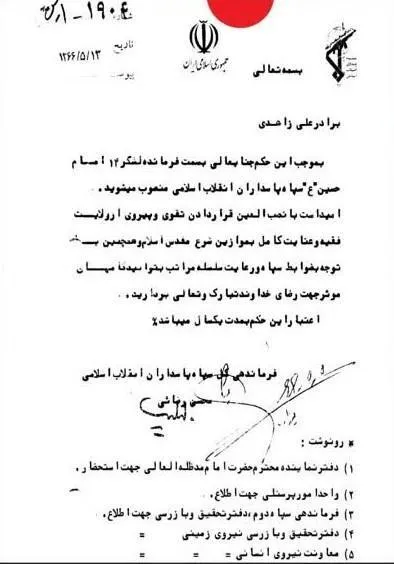 شماره ۱۹۰۴ - ۱
تاریخ ۱۳۶۶/۵/۱۳
پیوست
جمهوری اسلامی ایران
بسمه تعالی
برادر علی زاهدی
بموجب این حکم جنابعالی بسمت فرمانده لشکر ۱۴ امام
حسین "ع" سپاه پاسداران انقلاب اسلامی منصوب میشوید .
امید است با نصب العین قرار دادن تقوی و پیروی از ولایت
فقیه و عنایت کامل بموازین شرع مقدس اسلام و همچنین
توجه بضوابط سپاه و رعایت سلسله مراتب بتوانید
موثر جهت رضای خداوند تبارک و تعالی بردارید .
اعتبار این حکم بمدت یکسال میباشد %
فرماندهی کل سپاه پاسداران انقلاب اسلامی
محسن رضائی
* رونوشت :
۱) دفتر نماینده محترم حضرت امام مدظله العالی جهت استحضار .
۲) واحد امور پرسنلی جهت اطلاع .
۳) فرماندهی سپاه دوم ، دفتر تحقیق و بازرسی جهت اطلاع .
۴) دفتر تحقیق و بازرسی نیروی زمینی =
۵) معاونت نیروی انسانی = = =